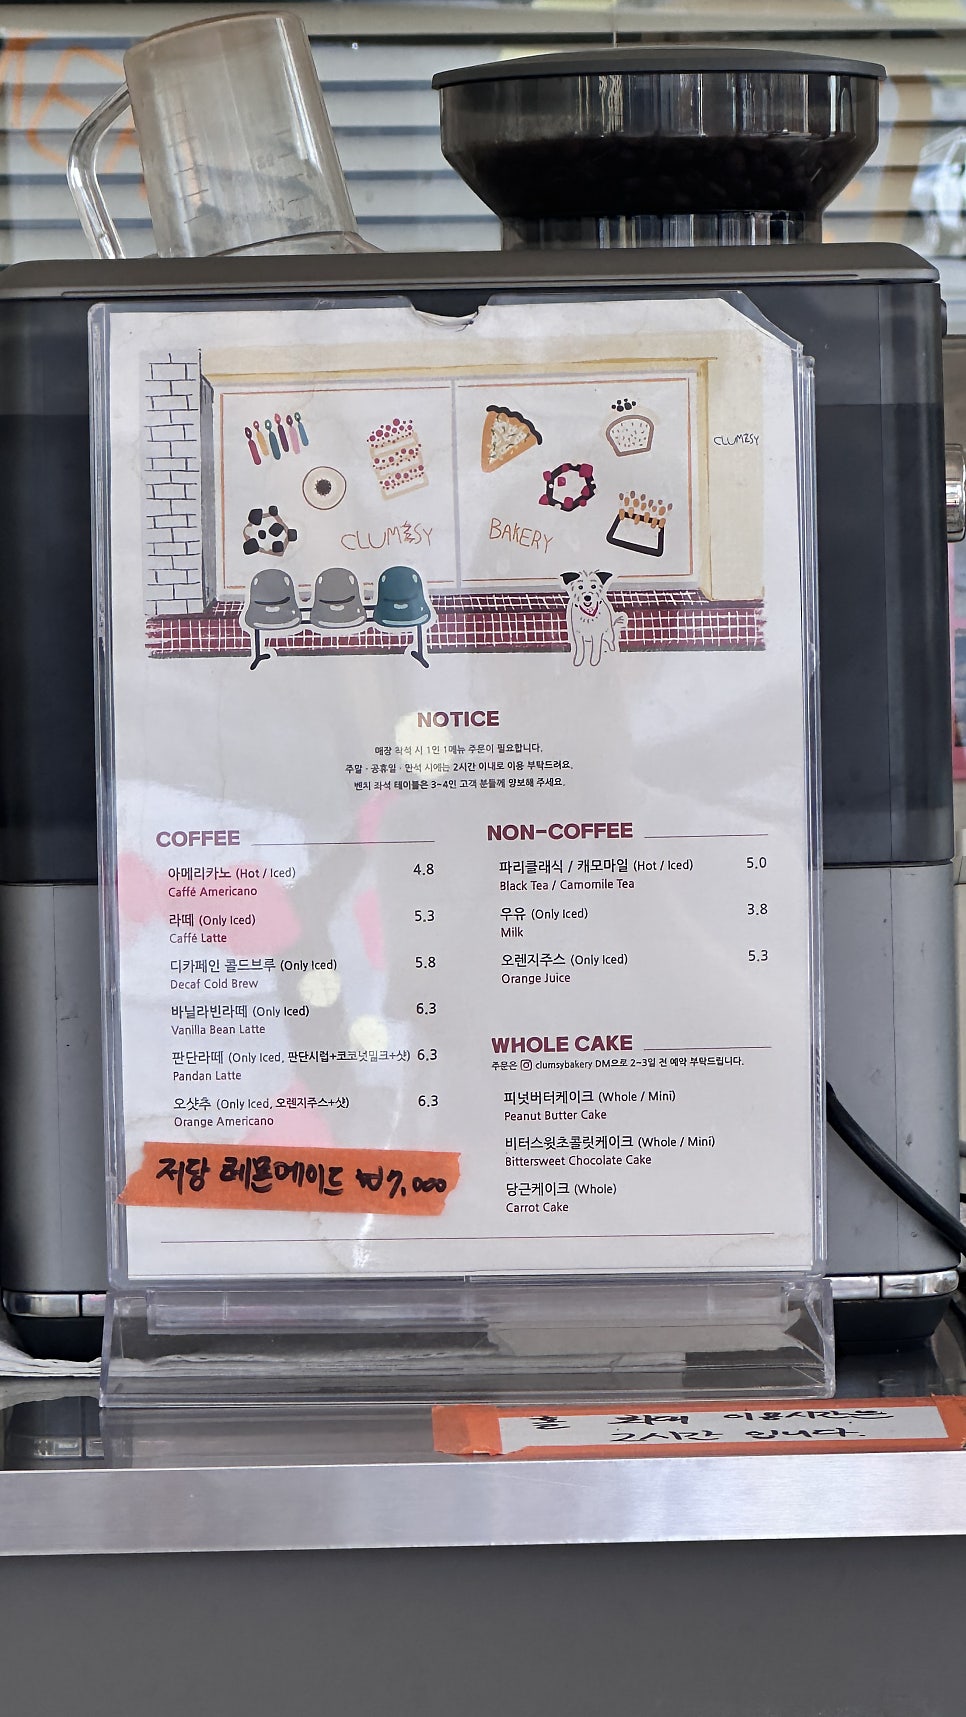 CLUMSY
CLUMSY BAKERY
NOTICE
매장 착석 시 1인 1메뉴 주문이 필요합니다.
주말 · 공휴일 · 만석 시에는 2시간 이내로 이용 부탁드려요.
벤치 좌석 테이블은 3~4인 고객 분들께 양보해 주세요.
COFFEE
아메리카노 (Hot / Iced) 4.8
Caffé Americano
라떼 (Only Iced) 5.3
Caffé Latte
디카페인 콜드브루 (Only Iced) 5.8
Decaf Cold Brew
바닐라빈라떼 (Only Iced) 6.3
Vanilla Bean Latte
판단라떼 (Only Iced, 판단시럽+코코넛밀크+샷) 6.3
Pandan Latte
오샷추 (Only Iced, 오렌지주스+샷) 6.3
Orange Americano
저당 레몬에이드 ₩7,000
NON-COFFEE
파리클래식 / 캐모마일 (Hot / Iced) 5.0
Black Tea / Camomile Tea
우유 (Only Iced) 3.8
Milk
오렌지주스 (Only Iced) 5.3
Orange Juice
WHOLE CAKE
주문은 clumsybakery DM으로 2~3일 전 예약 부탁드립니다.
피넛버터케이크 (Whole / Mini)
Peanut Butter Cake
비터스윗초콜릿케이크 (Whole / Mini)
Bittersweet Chocolate Cake
당근케이크 (Whole)
Carrot Cake
홀 최대 이용시간은
2시간 입니다.